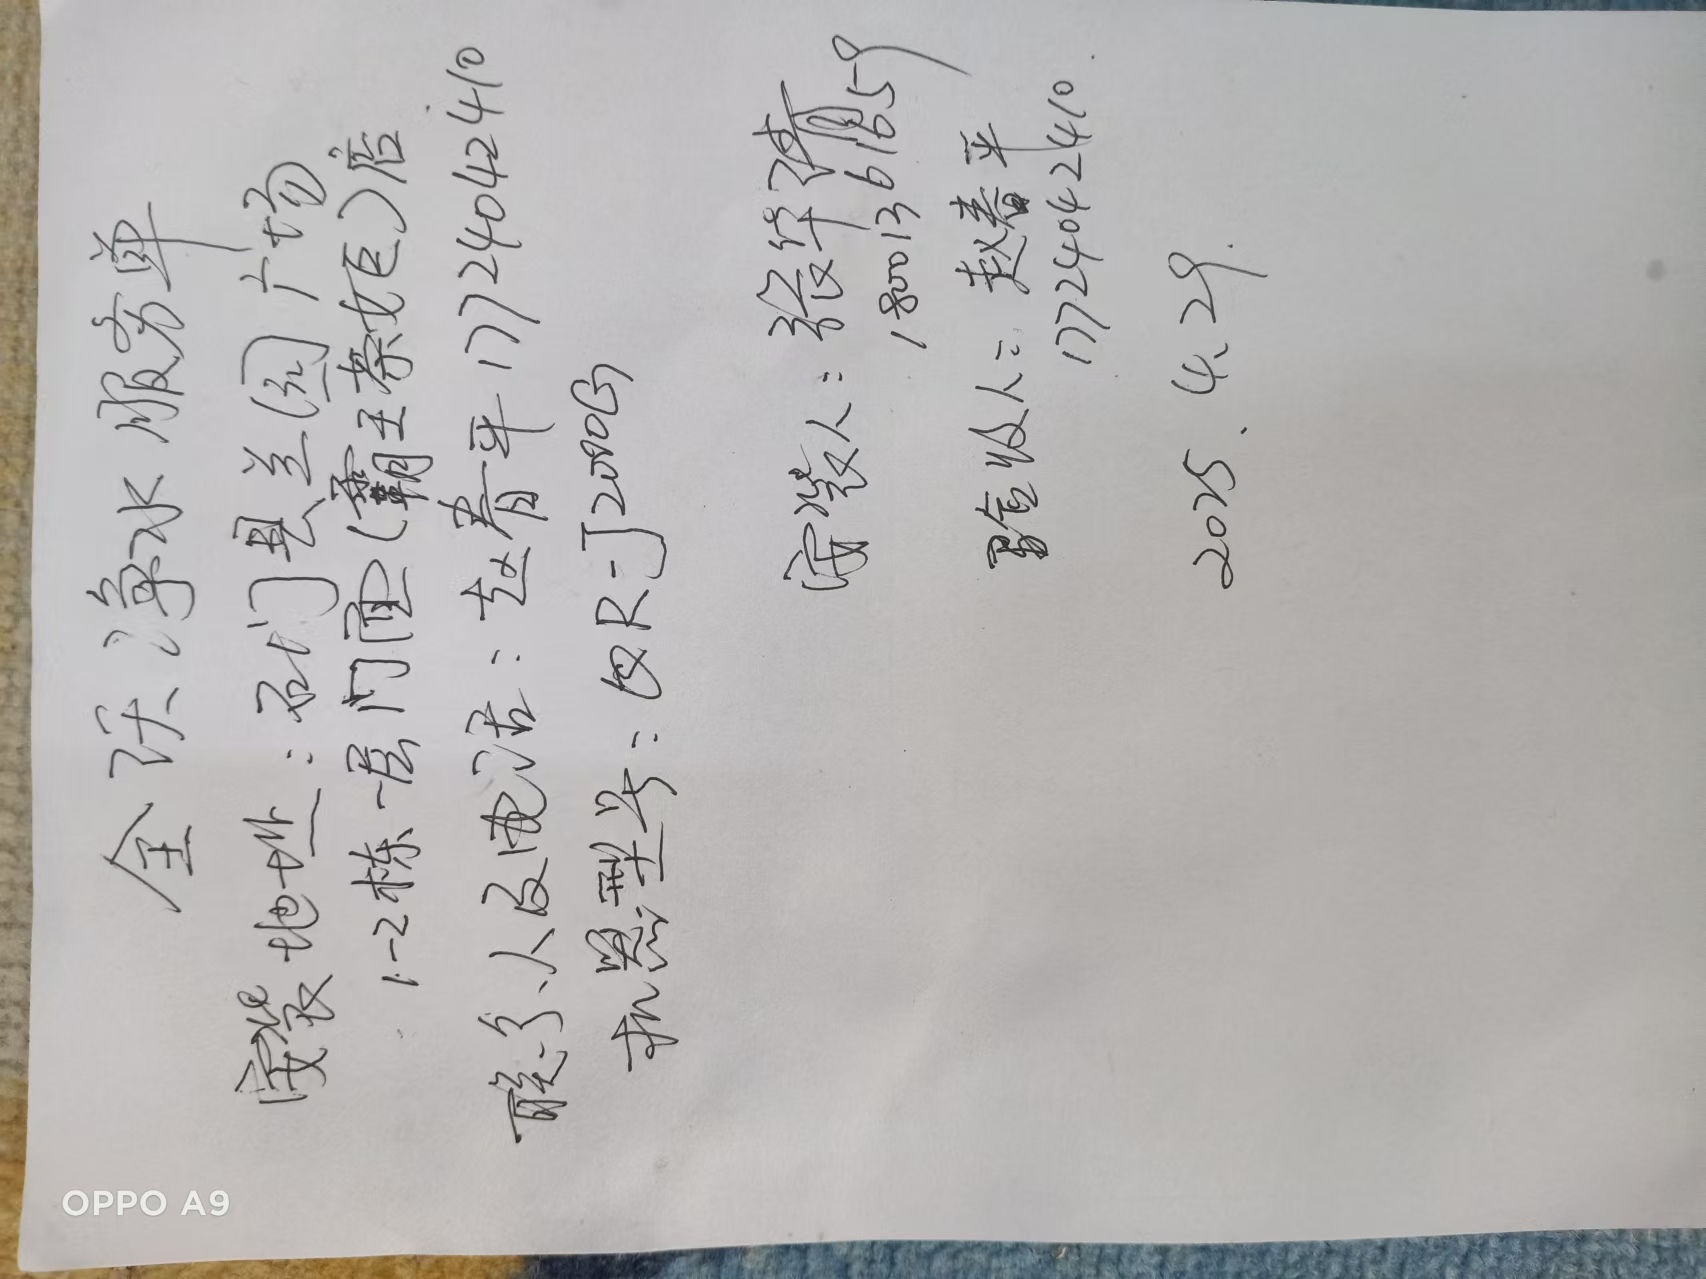 全沃净水服务单
安装地址：石门县兰(园)广场
1-2栋一层门面(霸王茶姬)店
联系人及电话：赵春平17724042410
机器型号：QR-J2000G
安装人：张华
18001361659
验收人：赵春平
17724042410
2025.4.29
OPPO A9